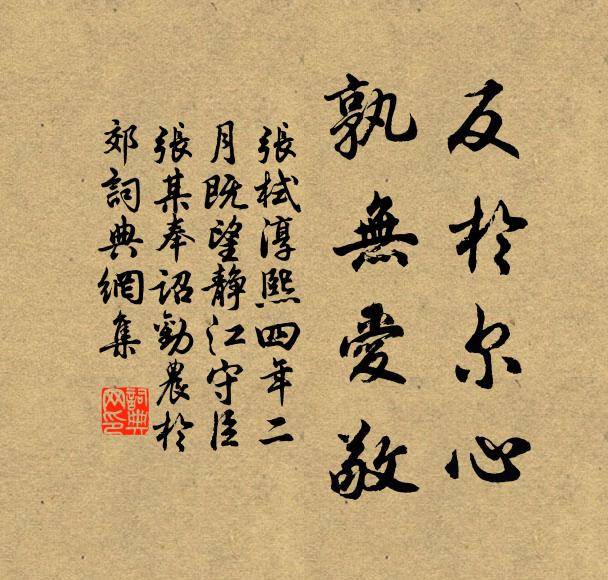 反於尔心
孰無愛敬
張栻淳熙四年二
月既望靜江守臣
張某奉詔勸農於
郊詞典網集
詞典
网印